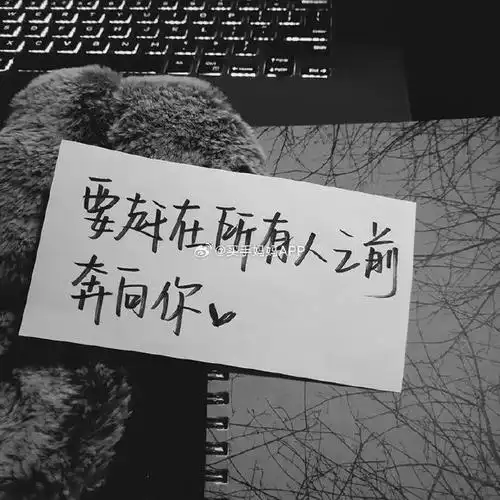 要赶在所有人之前
奔向你
@买手妈妈APP